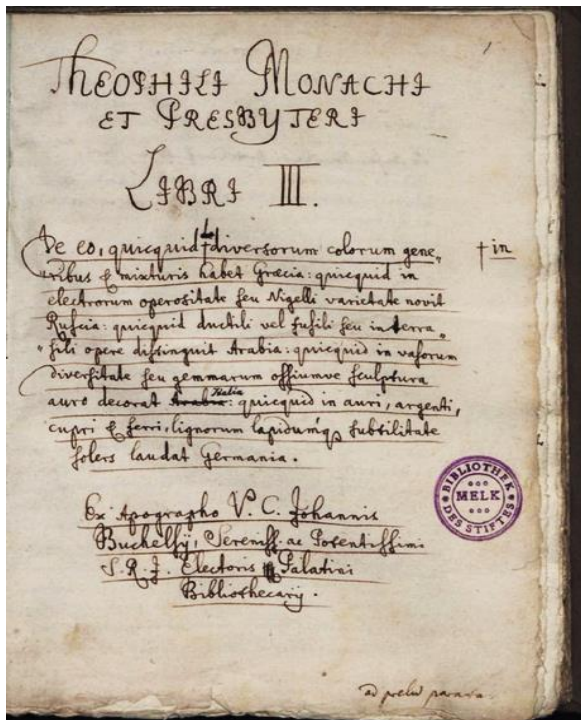 1
THEOPHILI MONACHI
ET PRESBYTERI
LIBRI III.
De eo, quicquid † diversorum colorum gene,, † in
ribus & mixturis habet Græcia: quicquid in
electrorum operositate seu Nigelli varietate novit
Ruscia: quicquid ductili vel fusili seu interra,,
sili opere distinguit Arabia: quicquid in vasorum
diversitate seu gemmarum ossiumve sculptura
auro decorat Arabia Italia: quicquid in auri, argenti,
cupri & ferri, lignorum lapidumq₃ subtilitate
solers laudat Germania.
Ex Apographo V. C. Johannis
Buchelij, Sereniss. ac Potentissimi
S. R. J. Electoris Palatini
Bibliothecarij.
BIBLIOTHEK
MELK
DES STIFTES
ad prelum parata